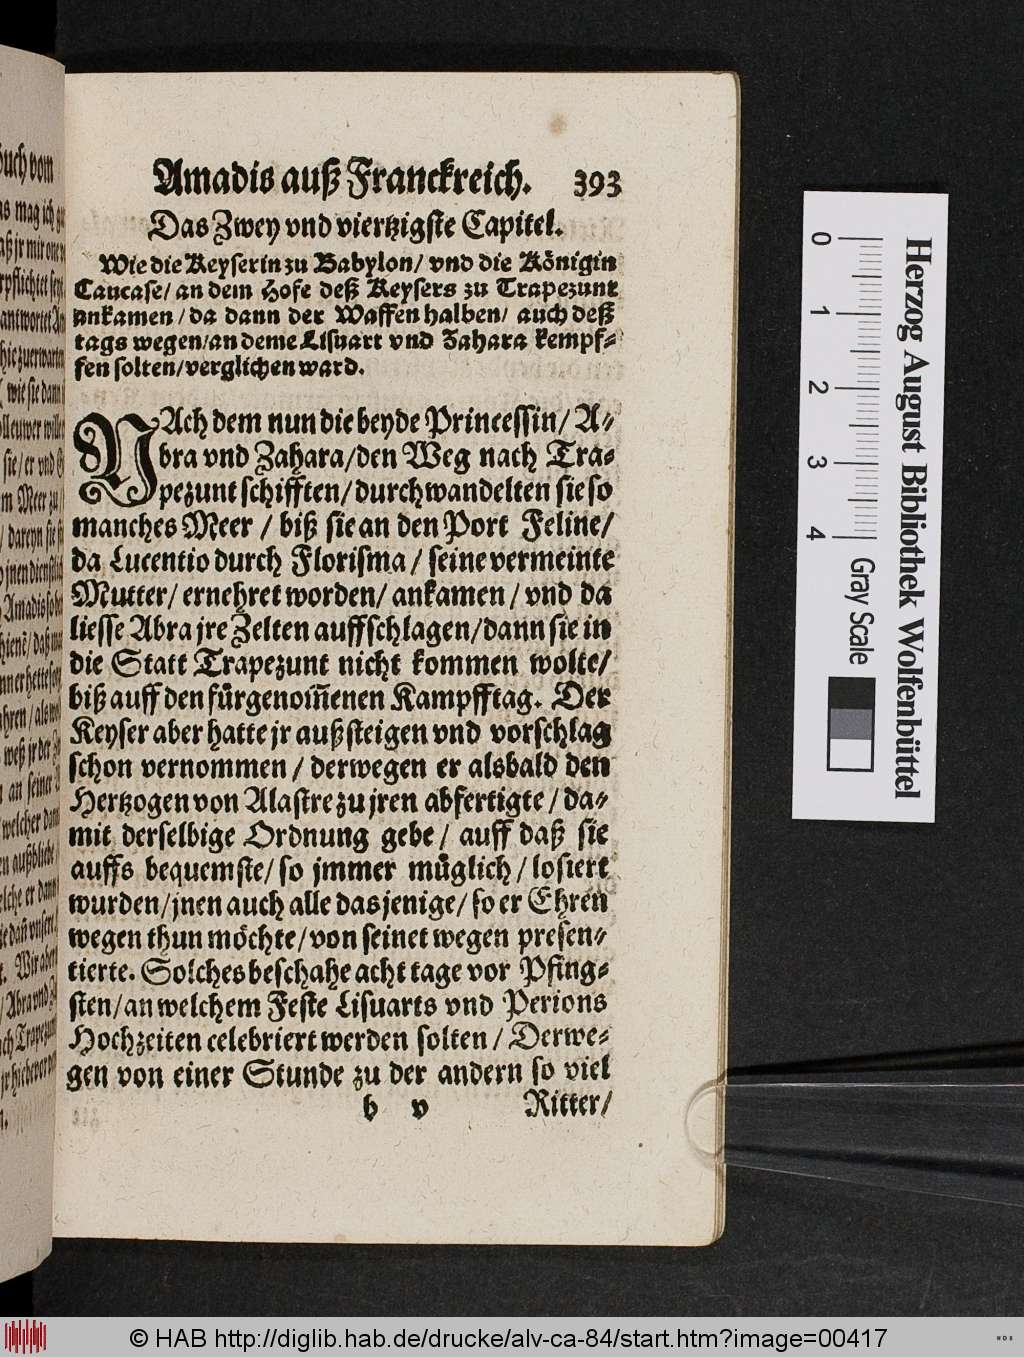 Amadis auß Franckreich. 393
Das Zwey vnd viertzigste Capitel.
Wie die Keyserin zu Babylon/ vnd die Königin
Caucase/ an dem Hofe deß Keysers zu Trapezunt
ankamen/ da dann der Waffen halben/ auch deß
tags wegen/ an deme Lisuart vnd Zahara kempf-
fen solten/ verglichen ward.
NAch dem nun die beyde Princessin/ A-
bra vnd Zahara/ den Weg nach Tra-
pezunt schifften/ durchwandelten sie so
manches Meer / biß sie an den Port Feline/
da Lucentio durch Florisma / seine vermeinte
Mutter/ ernehret worden/ ankamen / vnd da
liesse Abra jre Zelten auffschlagen/ dann sie in
die Statt Trapezunt nicht kommen wolte/
biß auff den fürgenom̃enen Kampfftag. Der
Keyser aber hatte jr außsteigen vnd vorschlag
schon vernommen / derwegen er alsbald den
Hertzogen von Alastre zu jren abfertigte / da-
mit derselbige Ordnung gebe / auff daß sie
auffs bequemste/ so jmmer müglich / losiert
wurden/ jnen auch alle das jenige/ so er Ehren
wegen thun möchte/ von seinet wegen presen-
tierte. Solches beschahe acht tage vor Pfing-
sten/ an welchem Feste Lisuarts vnd Perions
Hochzeiten celebriert werden solten / Derwe-
gen von einer Stunde zu der andern so viel
b v Ritter/
Buch vom
Herzog August Bibliothek Wolfenbüttel
0 1 2 3 4 Gray Scale
© HAB http://diglib.hab.de/drucke/alv-ca-84/start.htm?image=00417